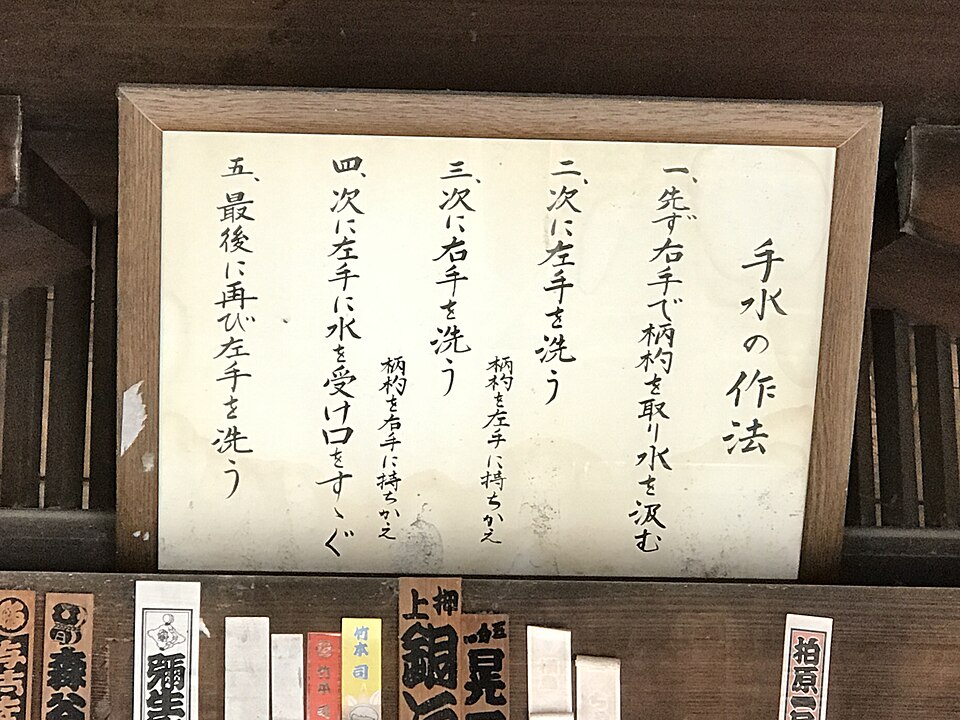 手水の作法
一、先ず右手で柄杓を取り水を汲む
二、次に左手を洗う
柄杓を左手に持ちかえ
三、次に右手を洗う
柄杓を右手に持ちかえ
四、次に左手に水を受け口をすゝぐ
五、最後に再び左手を洗う
森谷
彌生
竹本 司
押上
柏原